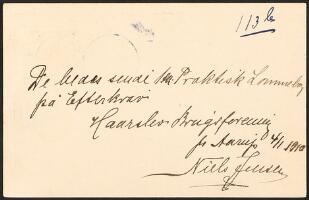 113 b
De bedes sende Praktisk Lommebog
på Efterkrav
Haarslev Brugsforening
pr Aarup 4/1 1910
Niels Jensen